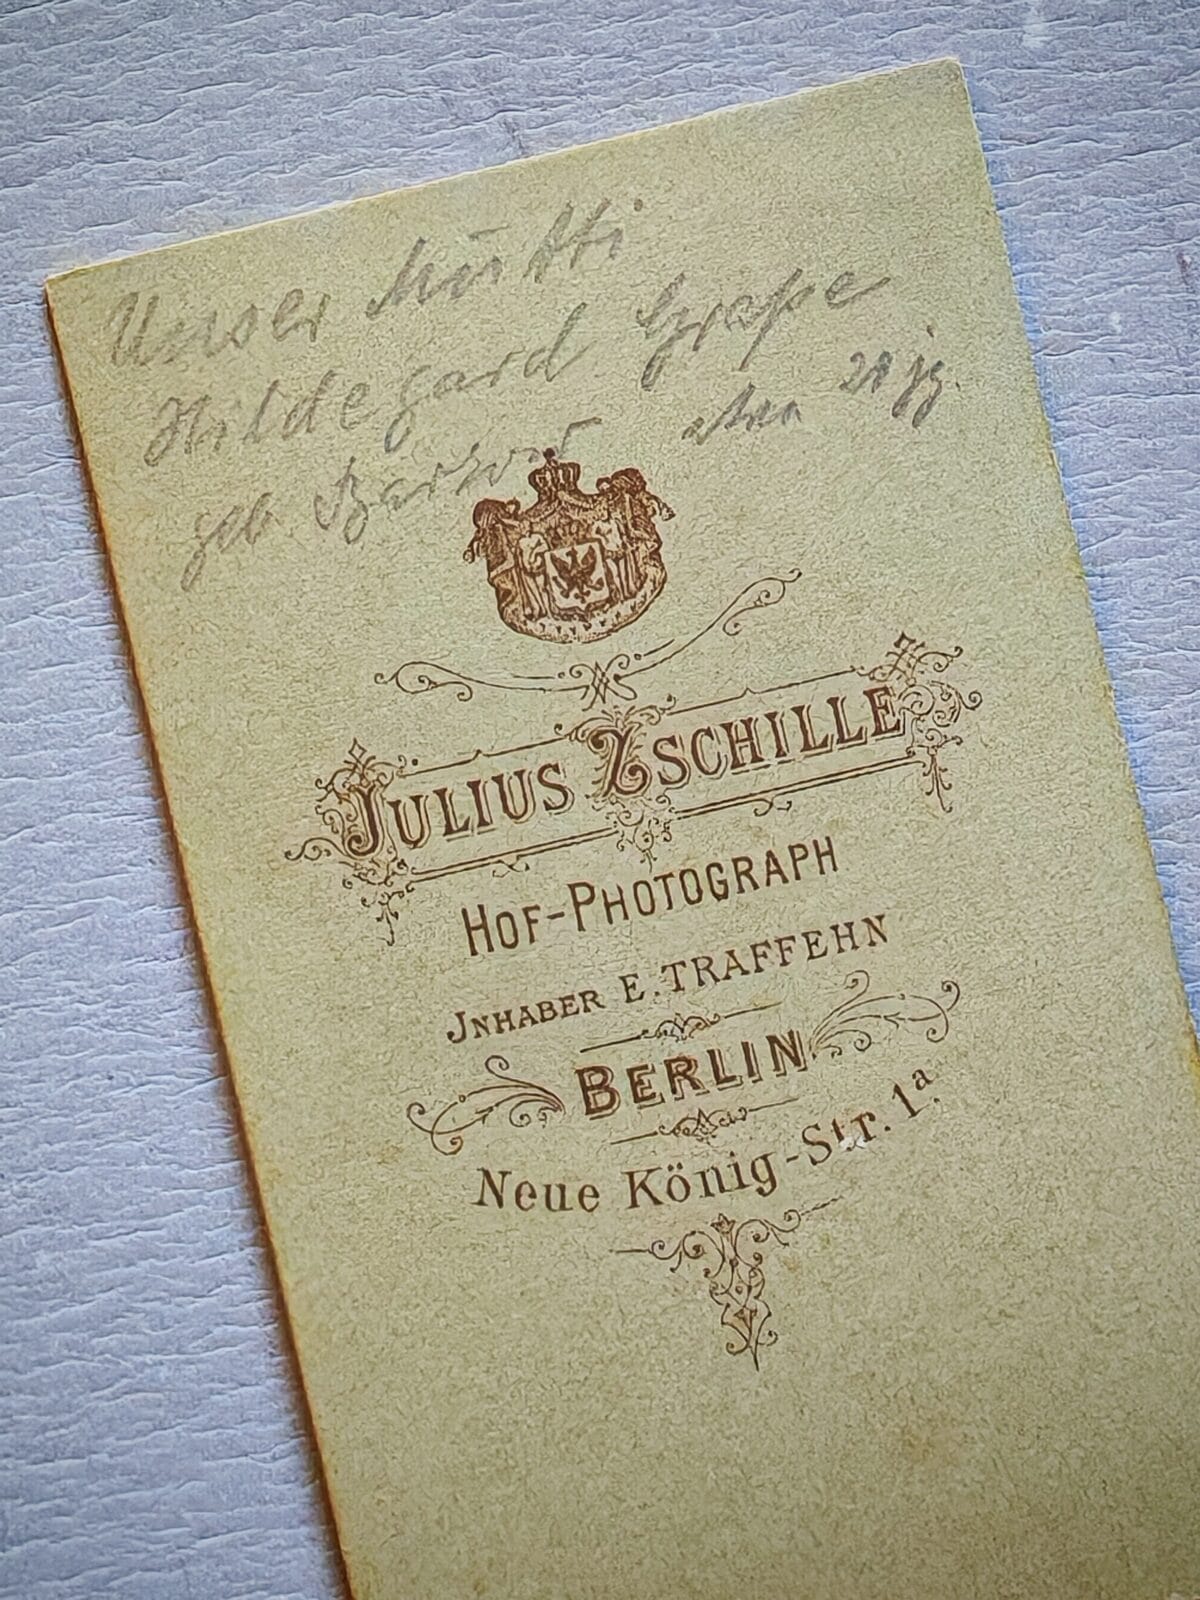 Unser Mutti
Hildegard Grape
geb. 21 jg.
JULIUS ZSCHILLE
HOF-PHOTOGRAPH
JNHABER E. TRAFFEHN
BERLIN
Neue König-Str. 1a.